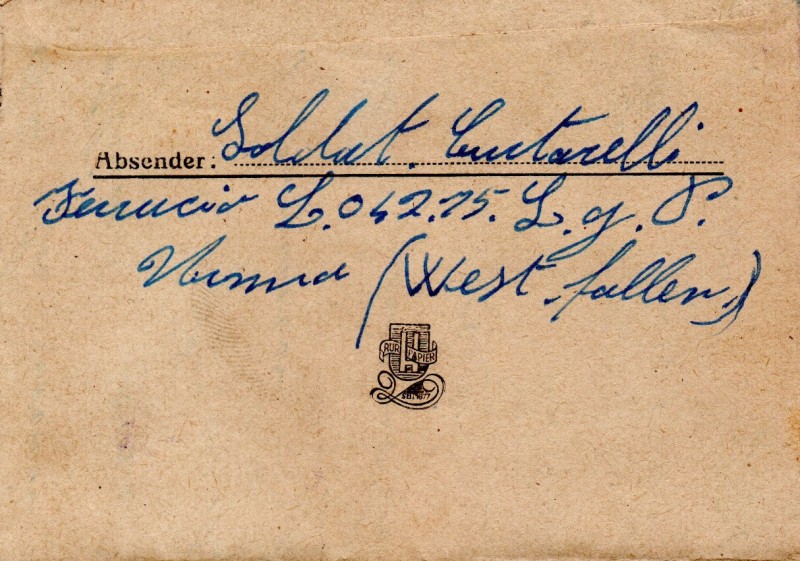 Absender: Soldat. Cuctarelli
Ferruccio L.04275. L.g.P.
Unna (West.fallen.)
RUR PAPIER
SEIT 1877